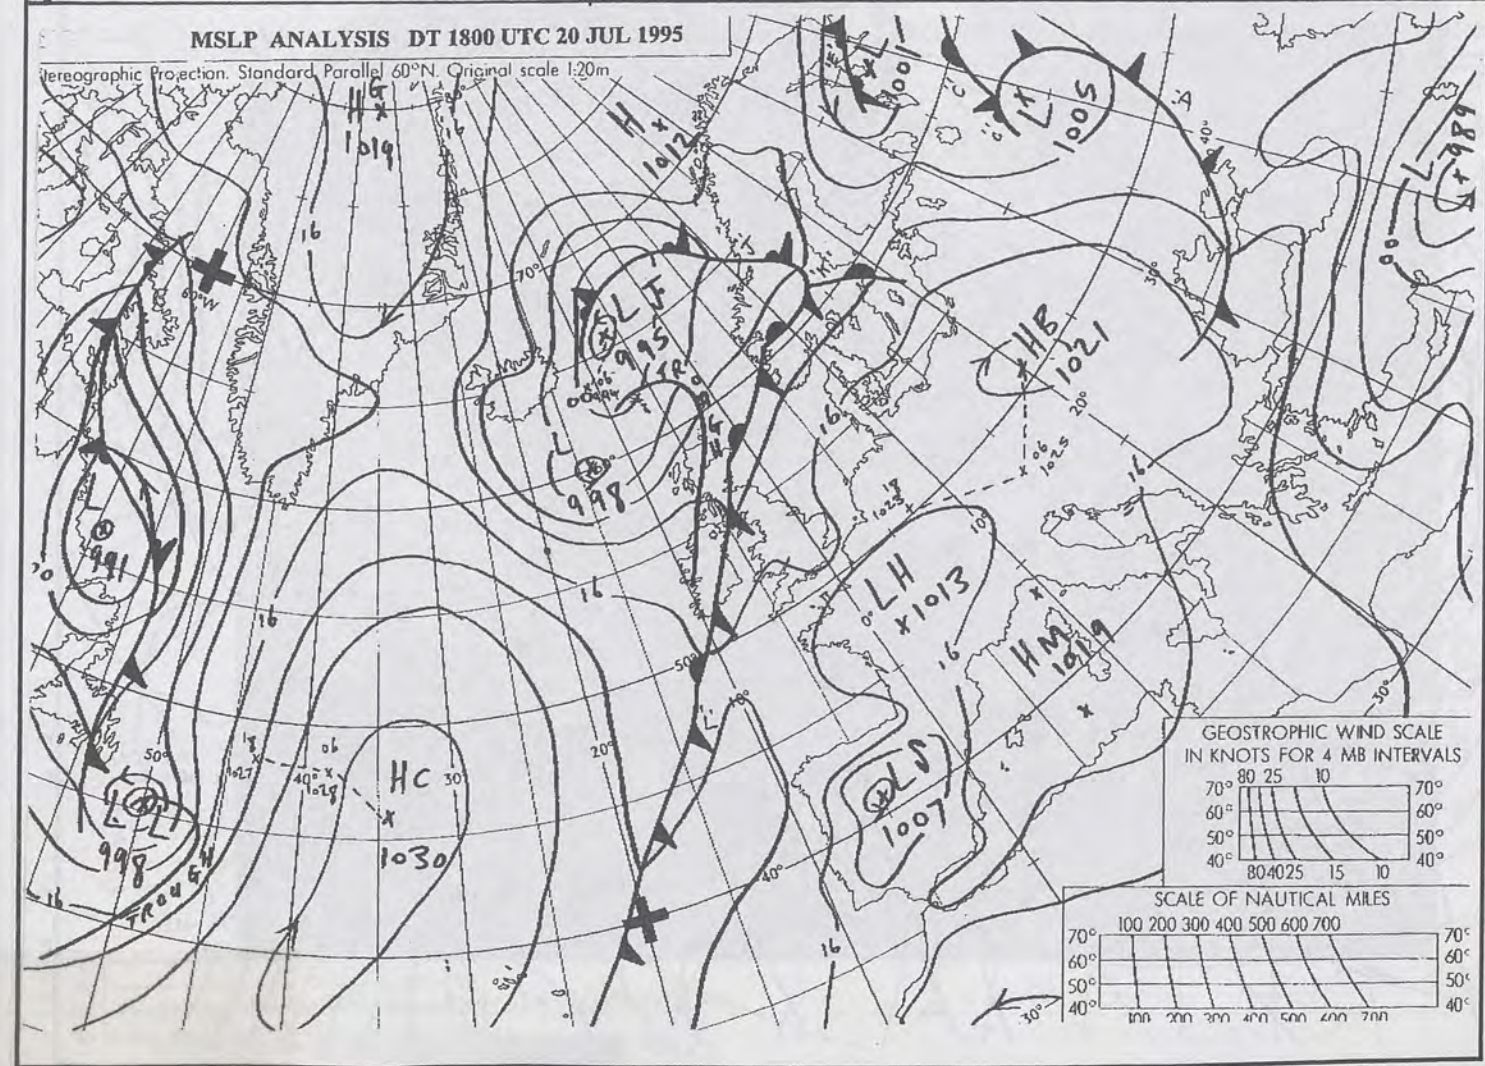 MSLP ANALYSIS DT 1800 UTC 20 JUL 1995
Stereographic Projection. Standard Parallel 60°N. Original scale 1:20m
H G
1019
16
16
H
1012
L
1001
L
1005
A
40°
L
989
00
16
70°
60°W
L J
995
TROUGH
L
998
HB
1021
30°
20°
06
1025
16
16
18
1023
10°
L
991
16
16
LH
1013
0°
HM
1019
16
50°
10°
20°
30°
50°
18
1027
40°
06
1028
HC
30
1030
L L
998
TROUGH
16
L
1007
40°
16
30°
GEOSTROPHIC WIND SCALE
IN KNOTS FOR 4 MB INTERVALS
80 25 10
70° 70°
60° 60°
50° 50°
40° 40°
80 40 25 15 10
SCALE OF NAUTICAL MILES
100 200 300 400 500 600 700
70° 70°
60° 60°
50° 50°
40° 40°
100 200 300 400 500 600 700